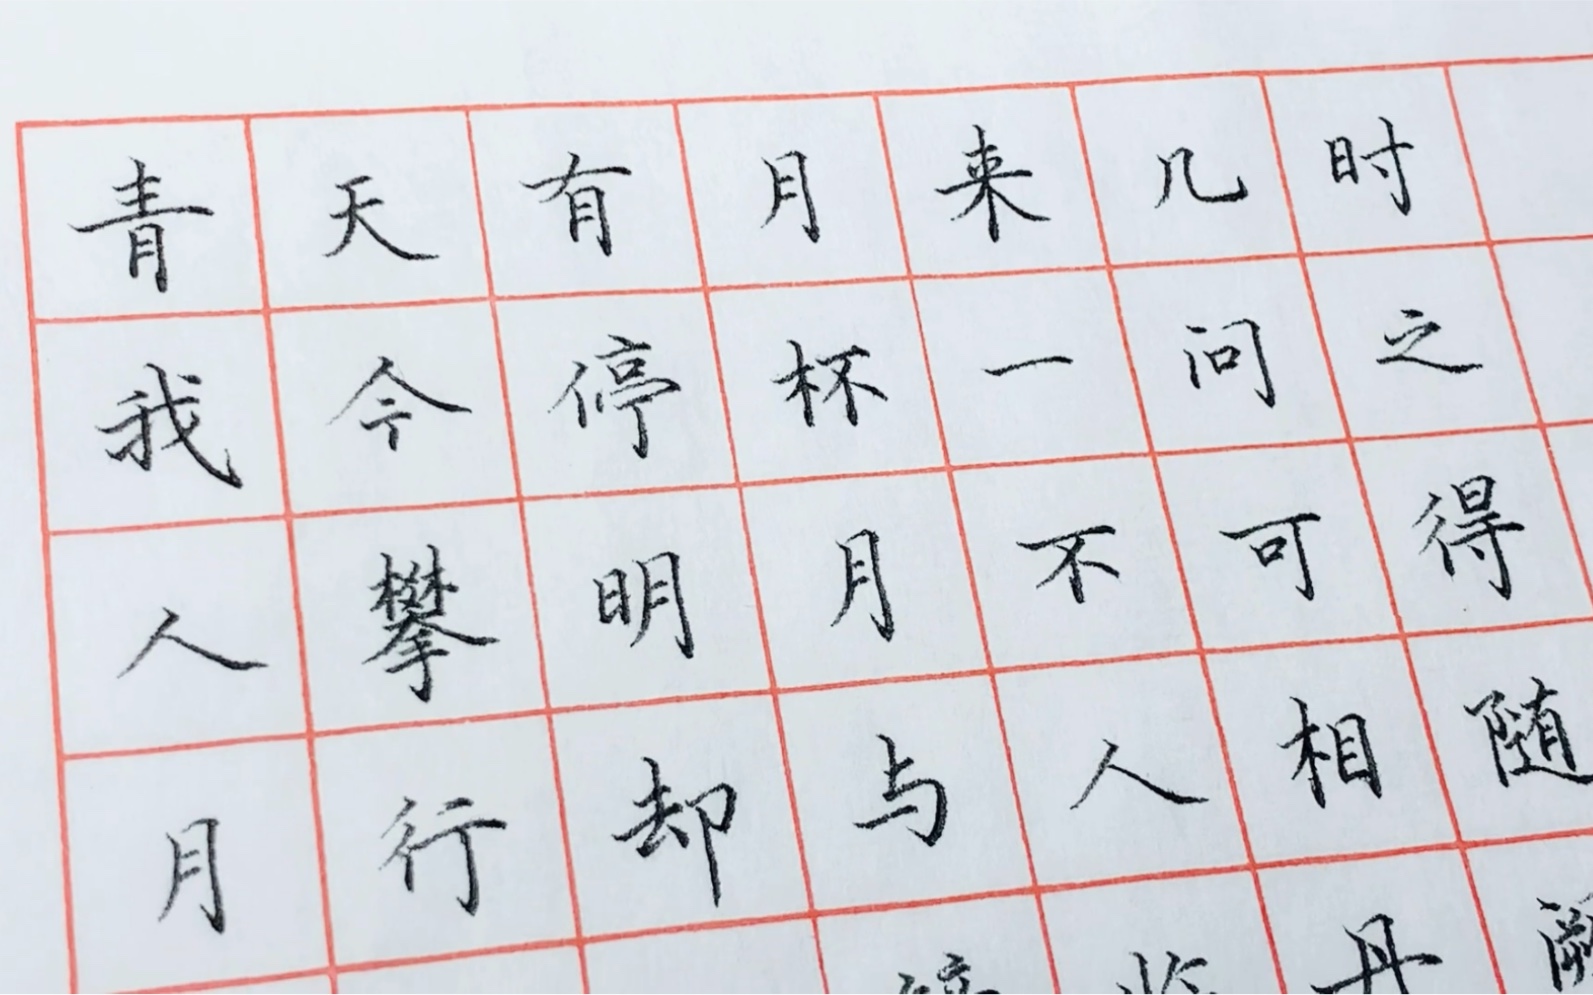 青天有月来几时
我今停杯一问之
人攀明月不可得
月行却与人相随
临丹